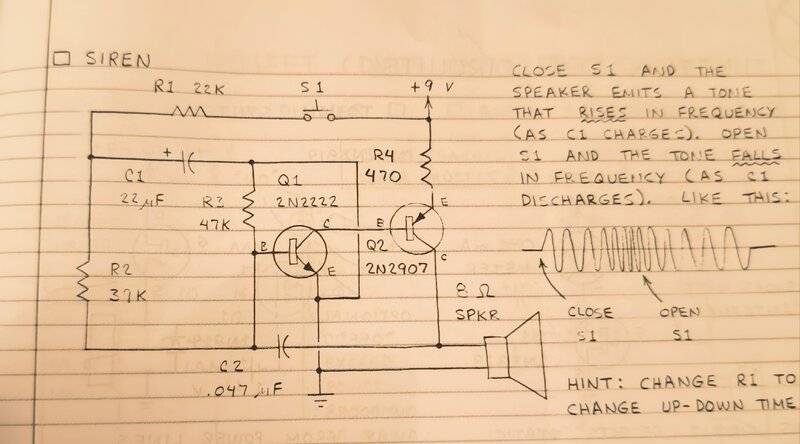 □ SIREN
R1 22K
S1
+9 V
C1
22µF
+
R3
47K
Q1
2N2222
B
C
E
R4
470
E
B
C
Q2
2N2907
R2
39K
C2
.047 µF
8 Ω
SPKR
CLOSE S1 AND THE
SPEAKER EMITS A TONE
THAT RISES IN FREQUENCY
(AS C1 CHARGES). OPEN
S1 AND THE TONE FALLS
IN FREQUENCY (AS C1
DISCHARGES). LIKE THIS:
CLOSE
S1
OPEN
S1
HINT: CHANGE R1 TO
CHANGE UP-DOWN TIME